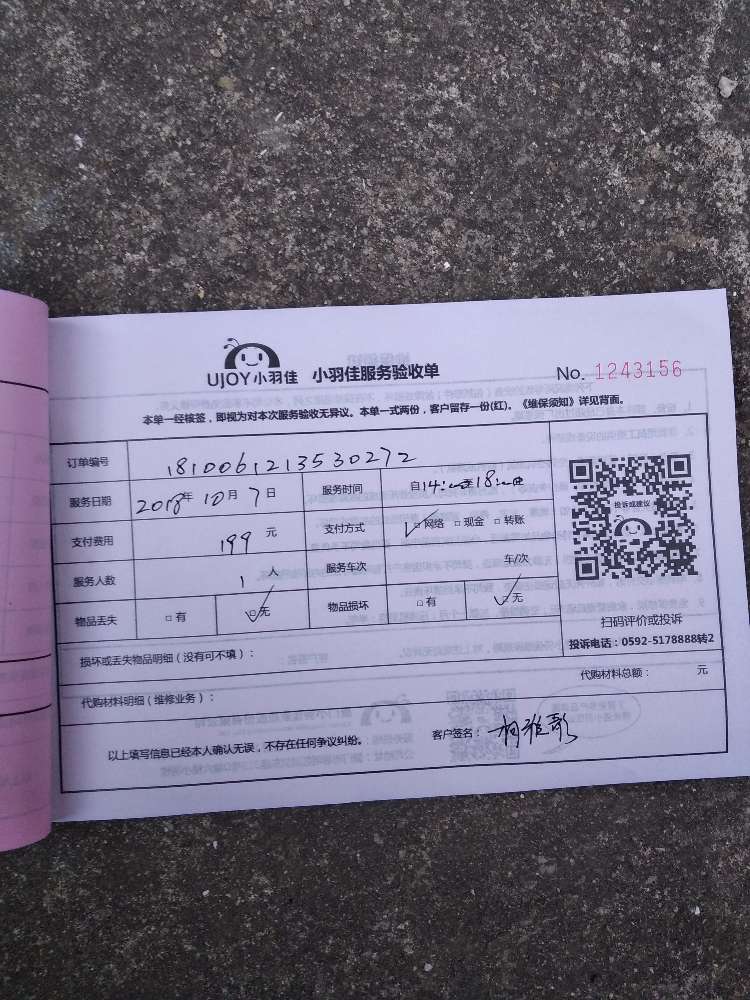 UJOY小羽佳 小羽佳服务验收单 No. 1243156
本单一经核签，即视为对本次服务验收无异议。本单一式两份，客户留存一份(红)。《维保须知》详见背面。
订单编号 1810061213530272
服务日期 2018年10月7日 服务时间 自14:00至18:00
支付费用 199 元 支付方式 ☑网络 □现金 □转账
服务人数 1 人 服务车次 车/次
物品丢失 □有 ☑无 物品损坏 □有 ☑无
投诉或建议
扫码评价或投诉
投诉电话：0592-5178888转2
损坏或丢失物品明细（没有可不填）：
代购材料明细（维修业务）： 代购材料总额： 元
以上填写信息已经本人确认无误，不存在任何争议纠纷。 客户签名：